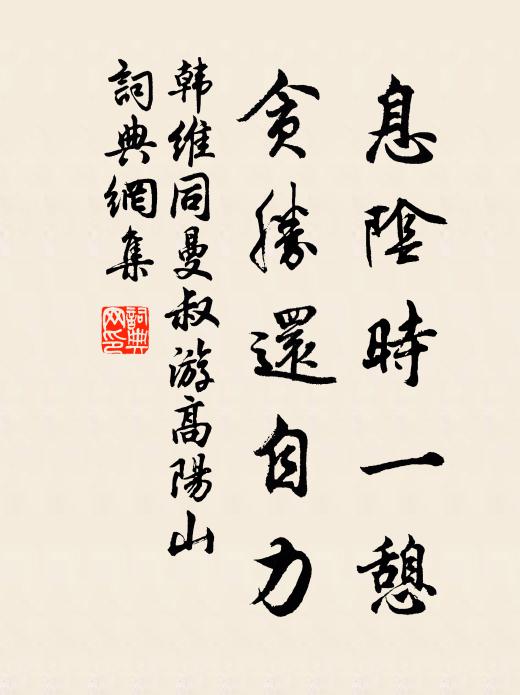 息陰時一憩
貪勝還自力
韩維同曼叔游高陽山
詞典網集
詞典
网印